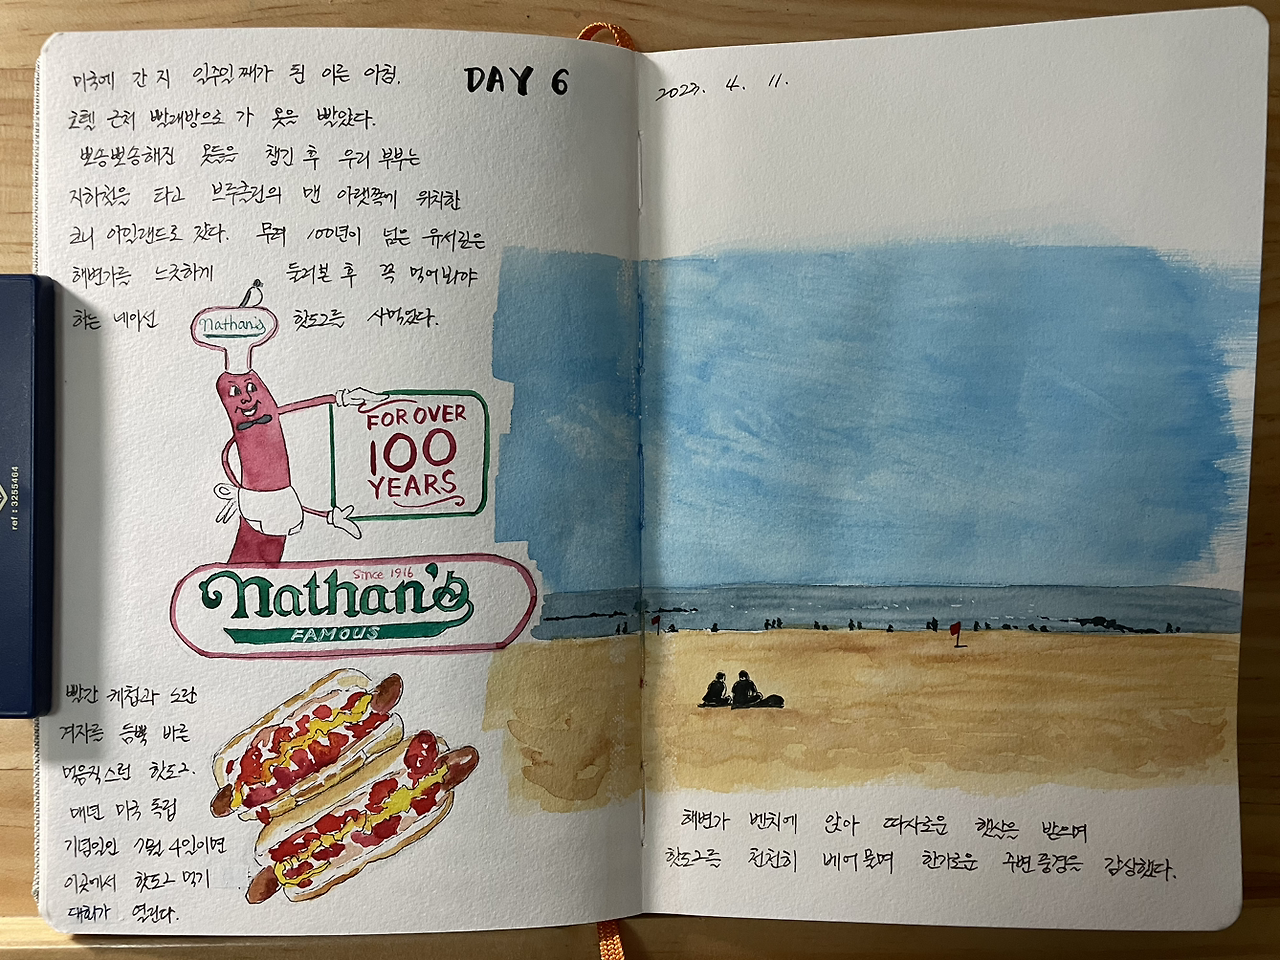 미국에 간 지 일주일째가 된 이른 아침.
DAY 6
호텔 근처 빨래방으로 가 옷을 빨았다.
뽀송뽀송해진 옷들을 챙긴 후 우리 부부는
지하철을 타고 브루클린의 맨 아랫쪽에 위치한
코니 아일랜드로 갔다. 무려 100년이 넘은 유서깊은
해변가를 느긋하게 둘러본 후 꼭 먹어봐야
하는 네이선 핫도그를 사먹었다.
Nathan's
FOR OVER
100
YEARS
Since 1916
Nathan's
FAMOUS
빨간 케첩과 노란
겨자를 듬뿍 바른
먹음직스런 핫도그.
매년 미국 독립
기념일인 7월 4일이면
이곳에서 핫도그 먹기
대회가 열린다.
2023. 4. 11.
해변가 벤치에 앉아 따사로운 햇살을 받으며
핫도그를 천천히 베어물며 한가로운 주변 풍경을 감상했다.
ref : 3255464